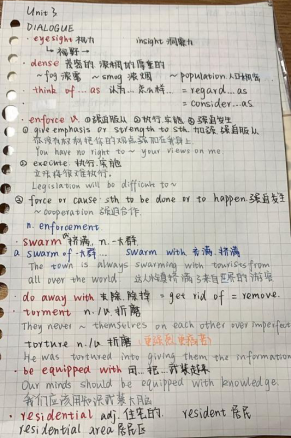 Unit 3
DIALOGUE
· eyesight 视力 insight 洞察力
↳ 视野 →
· dense 茂密的 浓稠的 厚重的
~ fog 浓雾 ~ smog 浓烟 ~ population 人口稠密
· think of ... as 认为...怎么样... = regard...as
= consider...as
· enforce v. ①强迫服从 ②执行.实施 ③强迫发生
① give emphasis or strength to sth. 加强.强迫服从
你没有权利把你的观点强加在我身上.
You have no right to ~ your views on me.
② execute 执行.实施
立法将很难执行.
Legislation will be difficult to ~
③ force or cause sth to be done or to happen 强迫发生
~ cooperation 强迫合作
n. enforcement
· swarm v. 挤满. n. 一大群
a swarm of 大群... swarm with 充满.挤满
The town is always swarming with tourists from
all over the world 这人你总挤满了来自世界的游客
· do away with 去除.除掉 = get rid of = remove.
· torment n./v. 折磨
They never ~ themselves on each other over imperfect
torture n./v. 折磨
He was tortured into giving them the information
· be equipped with 用...把...武装起来
Our minds should be equipped with knowledge.
我们应该用知识武装大脑
· residential adj. 住宅的. resident 居民
residential area 居民区